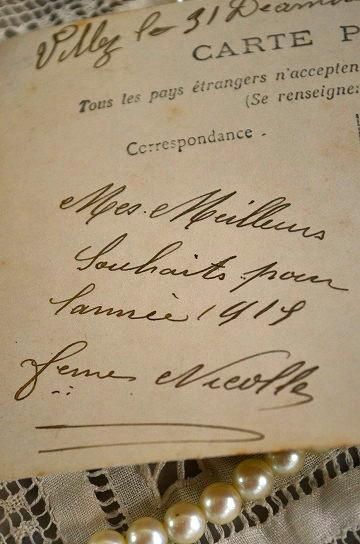 Villez le 31 Décem
CARTE P
Tous les pays étrangers n'accepten
(Se renseigne
Correspondance
Mes Meilleurs
Souhaits pour
l'année 1919
Nicolle